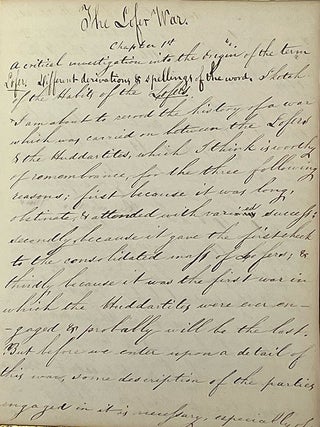 The Lofer War.
Chapter 1st
A critical investigation into the "Origin" of the term
Lofer. Different derivations & spellings of the word. Sketch
of the Habits of the Lofers.
I am about to record the history of a war
which was carried on between the Lofers
& the Huddartites, which I think is worthy
of remembrance, for the three following
reasons; first because it was long,
obstinate, & attended with varied success:
secondly, because it gave the first check
to the consolidated mass of Lofers; &
thirdly because it was the first war in
which the Huddartites were ever en-
-gaged & probably will be the last.
But before we enter upon a detail of
this war, some description of the parties
engaged in it is necessary, especially of